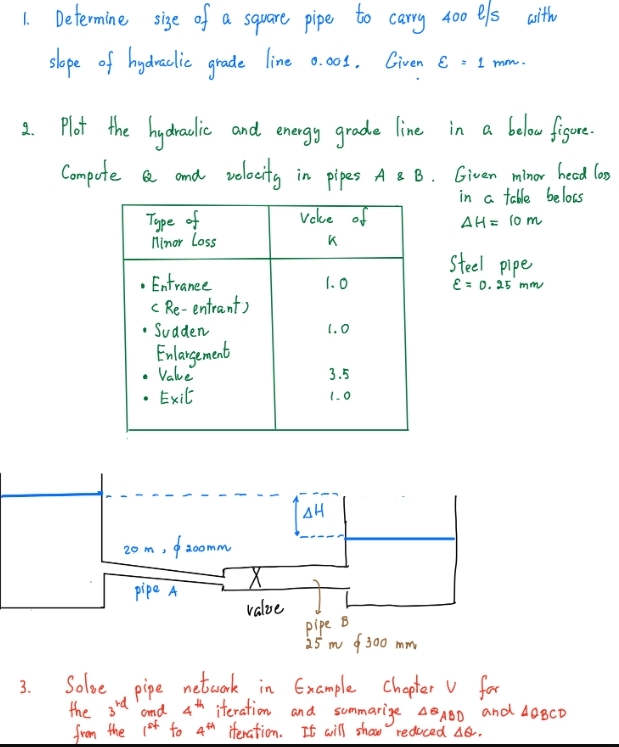 1. Determine size of a square pipe to carry 400 l/s with
slope of hydraulic grade line 0.001. Given ε = 1 mm.
2. Plot the hydraulic and energy grade line in a below figure.
Compute Q and velocity in pipes A & B. Given minor head loss
in a table below
ΔH = 10 m
Steel pipe
ε = 0.25 mm
Type of Minor Loss | Value of K
• Entrance (Re-entrant) 1.0
• Sudden Enlargement 1.0
• Valve 3.5
• Exit 1.0
ΔH
20 m, φ 200mm
pipe A
X
valve
pipe B
25 m φ 300 mm
3. Solve pipe network in Example Chapter V for
the 3rd and 4th iteration and summarize ΔQABD and ΔQBCD
from the 1st to 4th iteration. It will show reduced ΔQ.